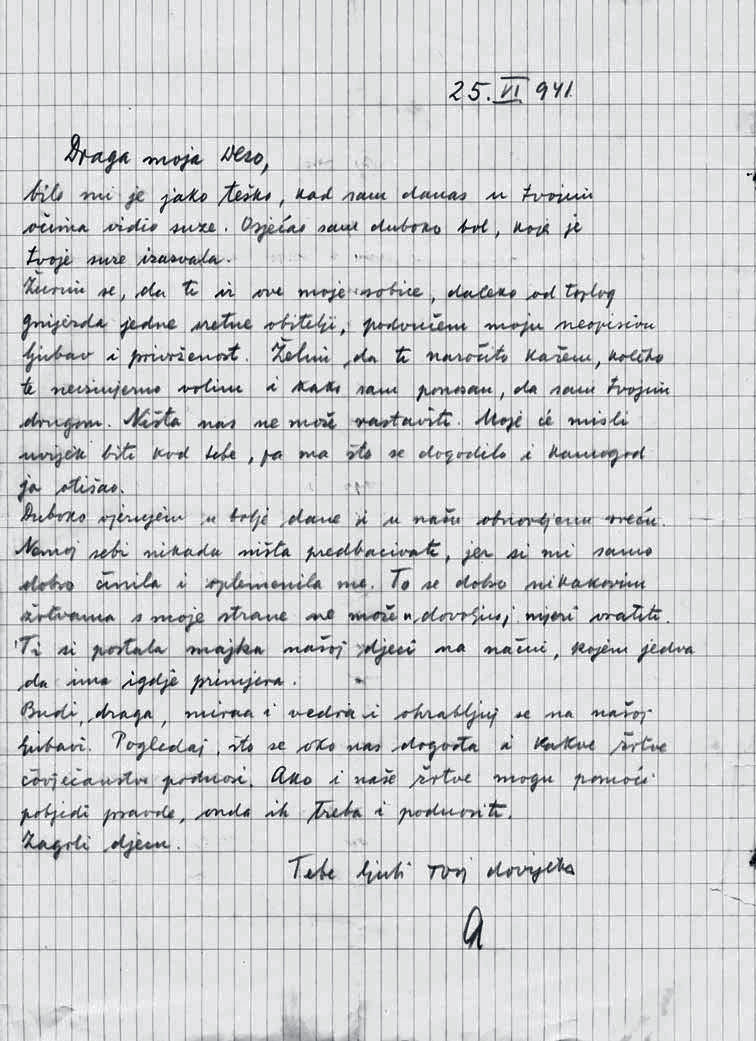 25. VI 941.
Draga moja Veso,
bilo mi je jako teško, kad sam danas u tvojim
očima vidio suze. Osjećao sam duboko bol, koja je
tvoje suze izazvala.
Žurim se, da ti iz ove moje sobice, daleko od toplog
gnijezda jedne sretne obitelji, podvučem moju neopisivu
ljubav i privrženost. Želim, da ti naročito kažem, koliko
te neizmjerno volim i kako sam ponosan, da sam tvojim
drugom. Ništa nas ne može rastaviti. Moje će misli
uvijek biti kod tebe, pa ma što se dogodilo i kamogod
ja otišao.
Duboko vjerujem u bolje dane i u našu obnovljenu sreću.
Nemoj sebi nikada ništa predbacivati, jer si mi samo
dobro činila i oplemenila me. To se dobro nikakovim
žrtvama s moje strane ne može u dovoljnoj mjeri vratiti.
Ti si postala majka našoj djeci na način, kojem jedva
da ima igdje primjera.
Budi, draga, mirna i vedra i ohrabljuj se na našoj
ljubavi. Pogledaj, što se oko nas događa i kakve žrtve
čovječanstvo podnosi. Ako i naše žrtve mogu pomoći
pobjedi pravde, onda ih treba i podnositi.
Zagrli djecu.
Tebe ljubi tvoj dovijeka
A